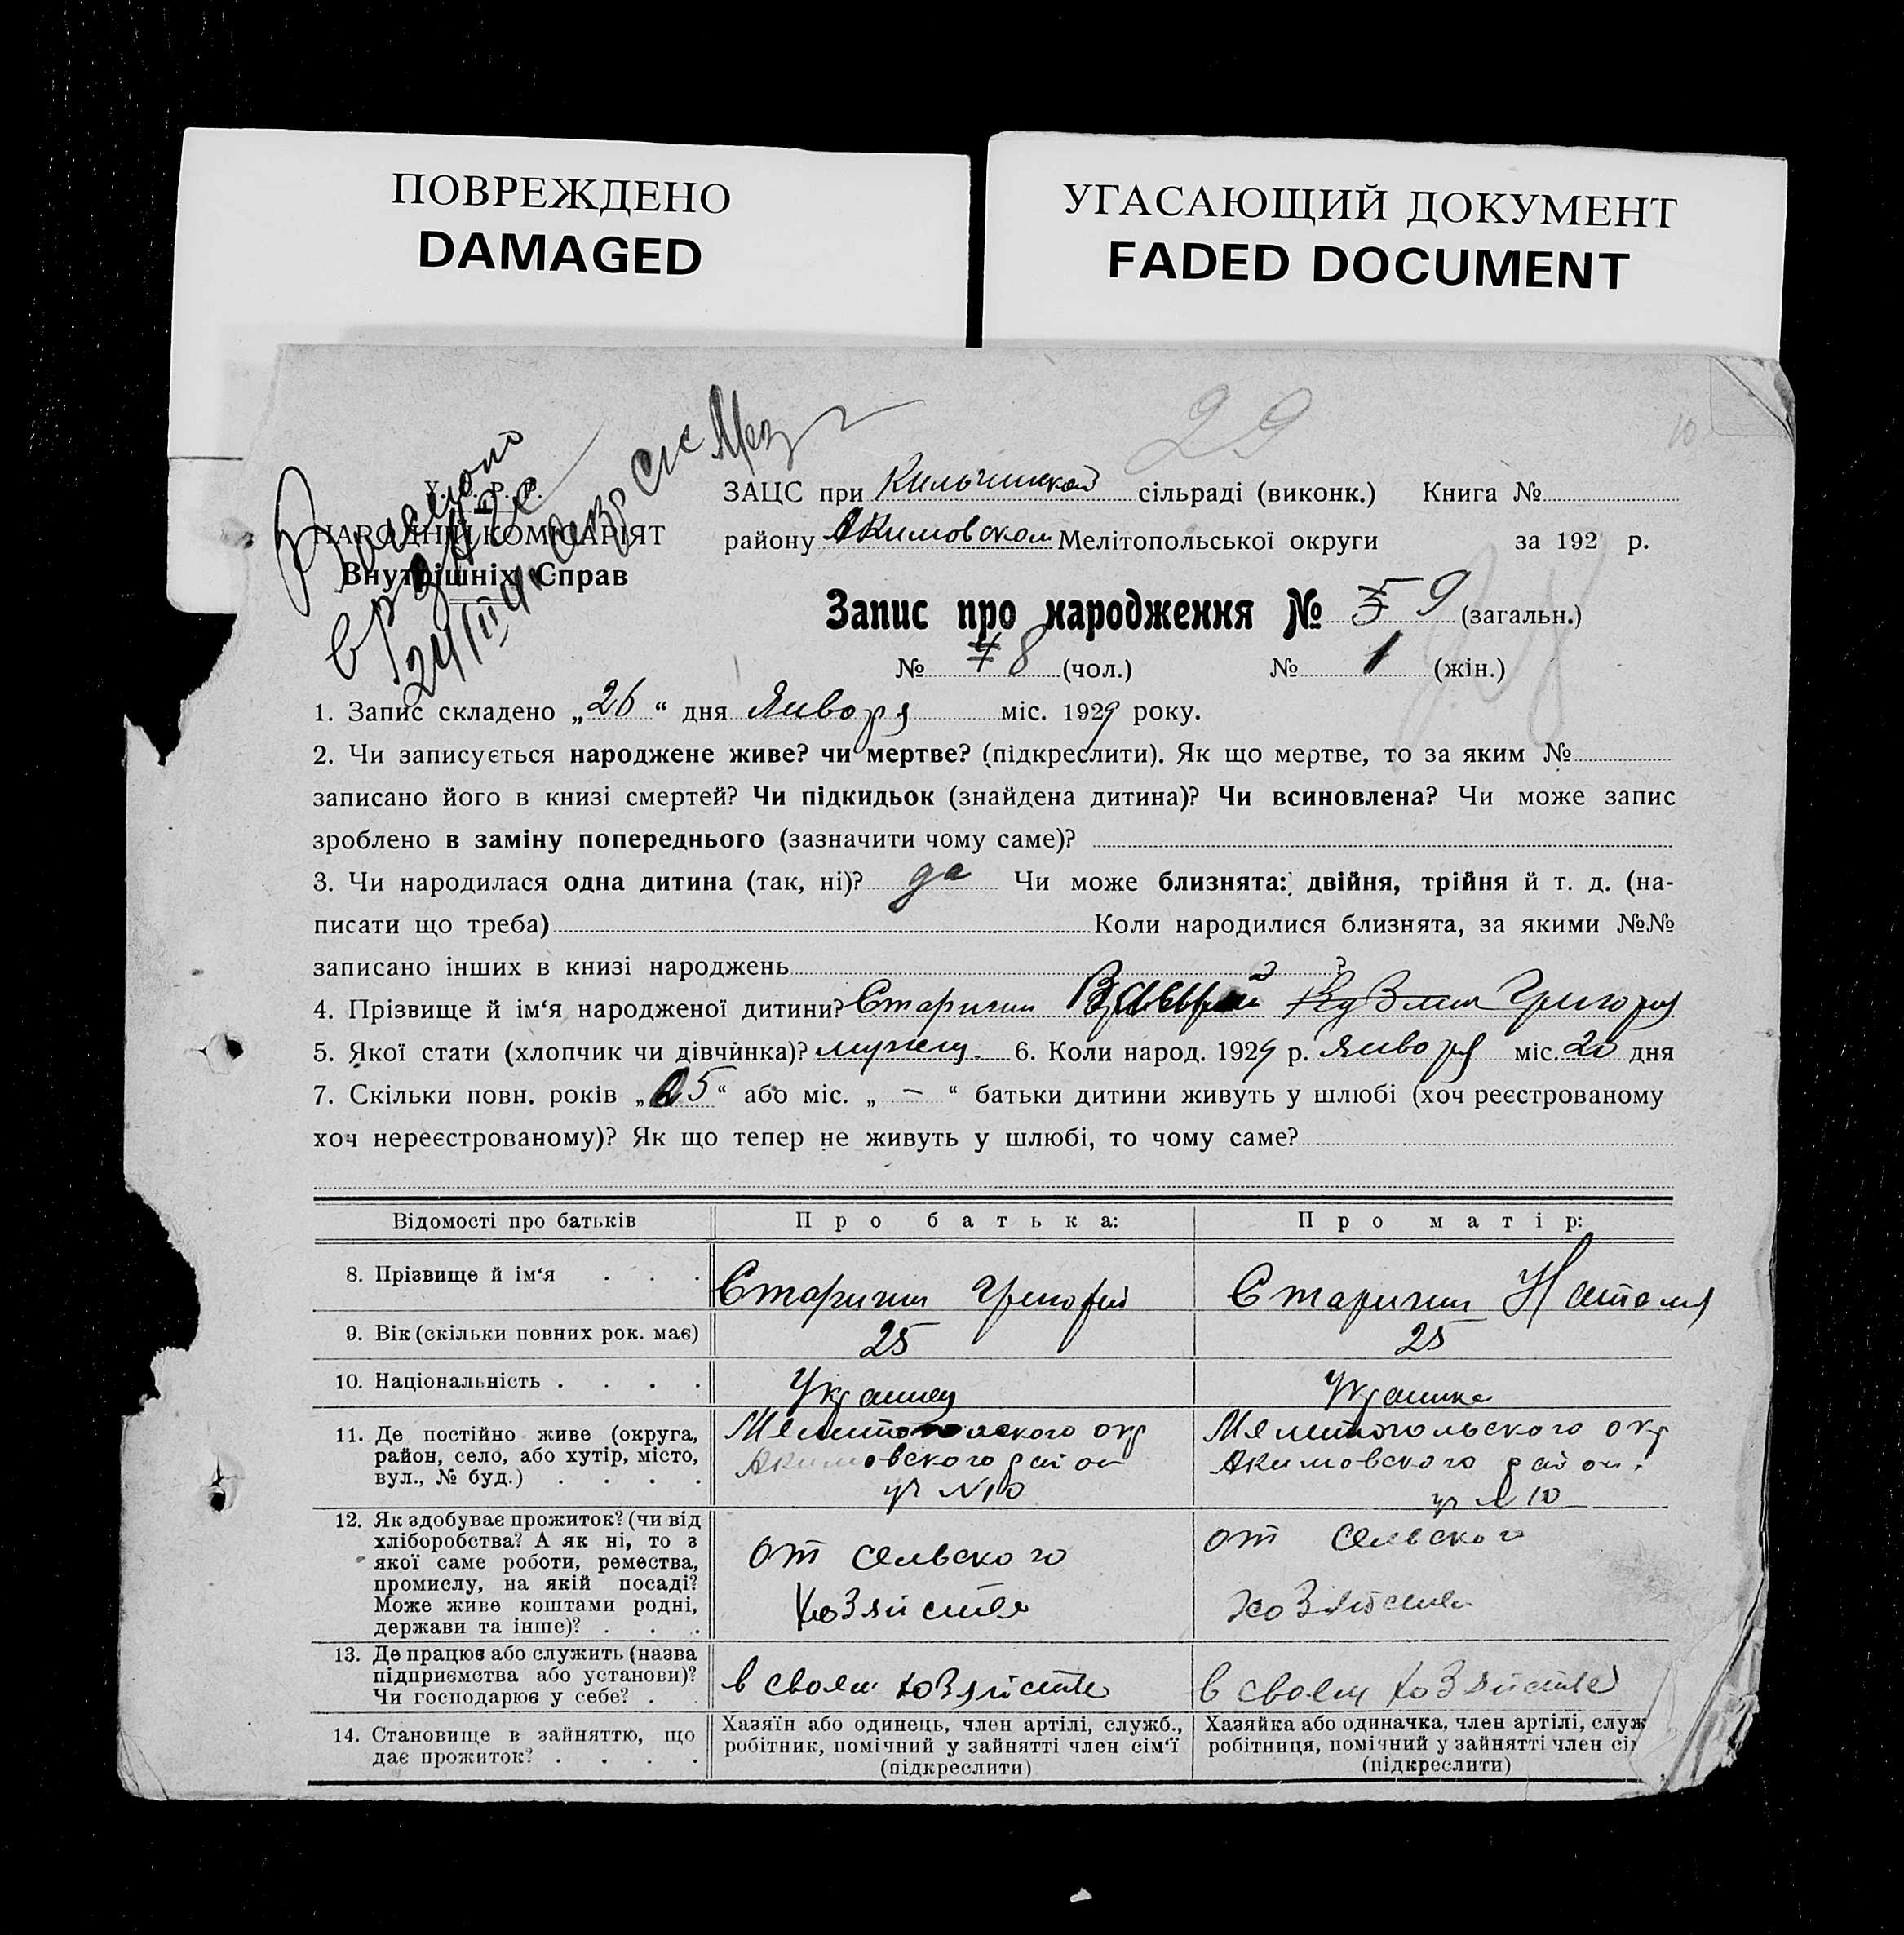 ПОВРЕЖДЕНО
DAMAGED
УГАСАЮЩИЙ ДОКУМЕНТ
FADED DOCUMENT
29
10
У. С. Р. Р.
НАРОДНІЙ КОМІСАРІЯТ
Внутрішніх Справ
ЗАЦС при сільраді (виконк.) Книга №
району Акимовском Мелітопольської округи за 192 р.
Запис про народження № 9 (загальн.)
№ 8 (чол.) № 1 (жін.)
1. Запис складено „26“ дня Января міс. 1929 року.
2. Чи записується народжене живе? чи мертве? (підкреслити). Як що мертве, то за яким №
записано його в книзі смертей? Чи підкидьок (знайдена дитина)? Чи всиновлена? Чи може запис
зроблено в заміну попереднього (зазначити чому саме)?
3. Чи народилася одна дитина (так, ні)? да Чи може близнята: двійня, трійня й т. д. (на-
писати що треба) Коли народилися близнята, за якими №№
записано інших в книзі народжень ?
4. Прізвище й ім‘я народженої дитини? Григоря
5. Якої стати (хлопчик чи дівчинка)? мужещ. 6. Коли народ. 1929 р. Января міс. 20 дня
7. Скільки повн. років „25“ або міс. „ — “ батьки дитини живуть у шлюбі (хоч реєстрованому
хоч нереєстрованому)? Як що тепер не живуть у шлюбі, то чому саме?
Відомості про батьків Про батька: Про матір:
8. Прізвище й ім‘я . . . Григорий Наталя
9. Вік (скільки повних рок. має) 25 25
10. Національність . . . . Украинец Украинка
11. Де постійно живе (округа,
район, село, або хутір, місто,
вул., № буд.) . . . .
Мелитопольского окр
Акимовского район
уч №10
Мелитопольского окр
Акимовского район.
уч №10
12. Як здобуває прожиток? (чи від
хліборобства? А як ні, то з
якої саме роботи, ремества,
промислу, на якій посаді?
Може живе коштами родні,
держави та інше)? . . .
от сельского
хозяйства
от сельского
хозяйства
13. Де працює або служить (назва
підприємства або установи)?
Чи господарює у себе? . .
в своем хозяйстве
в своем хозяйстве
14. Становище в зайняттю, що
дає прожиток? . . . .
Хазяїн або одинець, член артілі, служб.,
робітник, помічний у зайнятті член сім‘ї
(підкреслити)
Хазяйка або одиначка, член артілі, служ
робітниця, помічний у зайнятті член сі
(підкреслити)